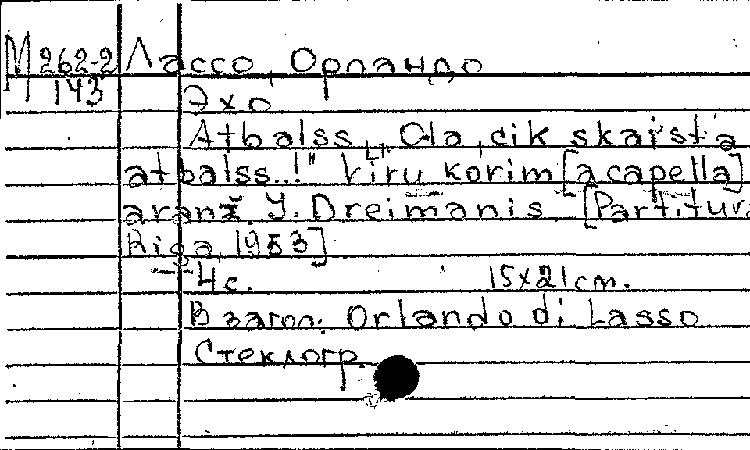 М 262-2 Лассо, Орландо
143 Эхо.
Atbalss. „Ola, cik skaista
atbalss..!" Vīru korim [a capella]
aranž. J. Dreimanis [Partitura
Riga, 1953]
4 с. 15x21 cm.
В загол: Orlando di Lasso
Стеклогр.